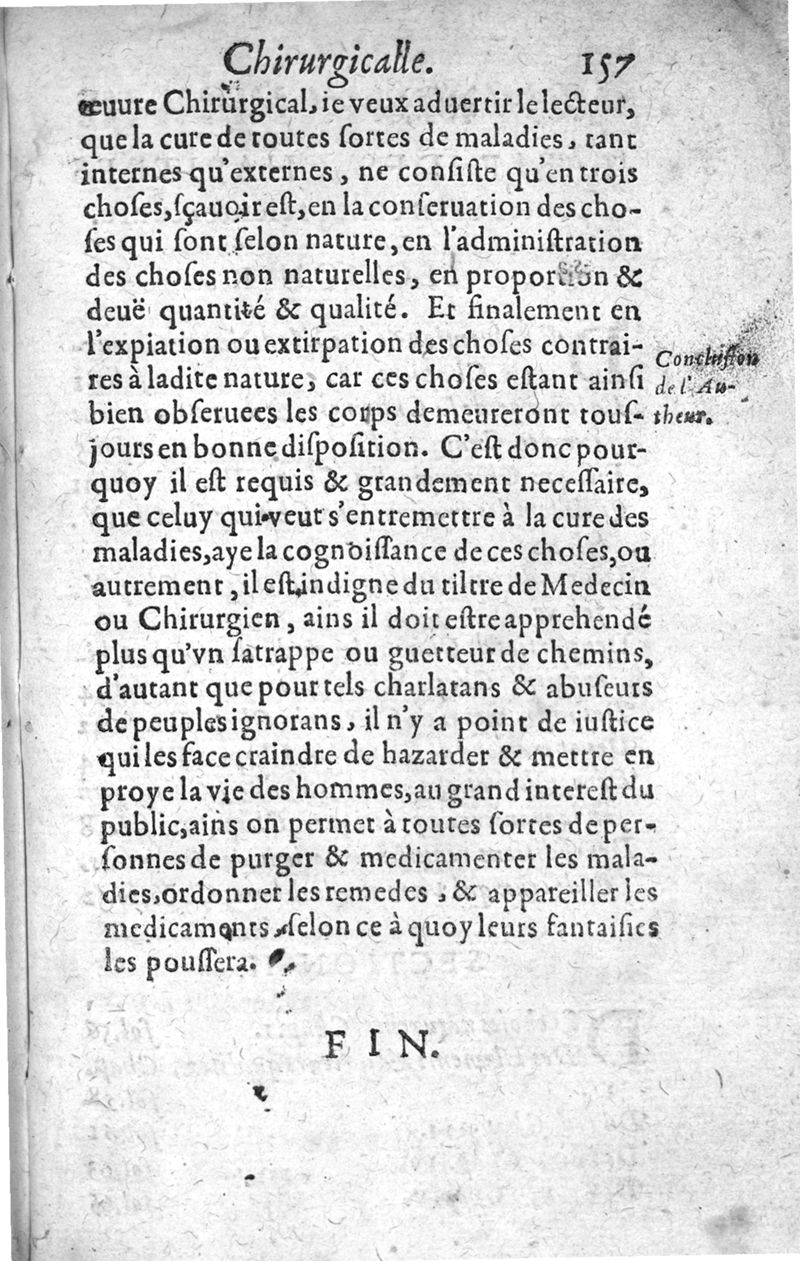 Chirurgicalle. 157
œuure Chirurgical, ie veux aduertir le lecteur,
que la cure de toutes ſortes de maladies, tant
internes qu'externes, ne conſiſte qu'en trois
choſes, ſçauoir eſt, en la conſeruation des cho-
ſes qui ſont ſelon nature, en l'adminiſtration
des choſes non naturelles, en proportion &
deuë quantité & qualité. Et finalement en
l'expiation ou extirpation des choſes contrai-
res à ladite nature, car ces choſes eſtant ainſi
bien obſeruees les corps demeureront touſ-
jours en bonne diſpoſition. C'eſt donc pour-
quoy il eſt requis & grandement neceſſaire,
que celuy qui veut s'entremettre à la cure des
maladies, aye la cognoiſſance de ces choſes, ou
autrement, il eſt indigne du tiltre de Medecin
ou Chirurgien, ains il doit eſtre apprehendé
plus qu'vn ſatrappe ou guetteur de chemins,
d'autant que pour tels charlatans & abuſeurs
de peuples ignorans, il n'y a point de iuſtice
qui les face craindre de hazarder & mettre en
proye la vie des hommes, au grand intereſt du
public, ains on permet à toutes ſortes de per-
ſonnes de purger & medicamenter les mala-
dies, ordonner les remedes, & appareiller les
medicaments, ſelon ce à quoy leurs fantaiſies
les pouſſera.
Concluſion
de l'Au-
theur.
FIN.